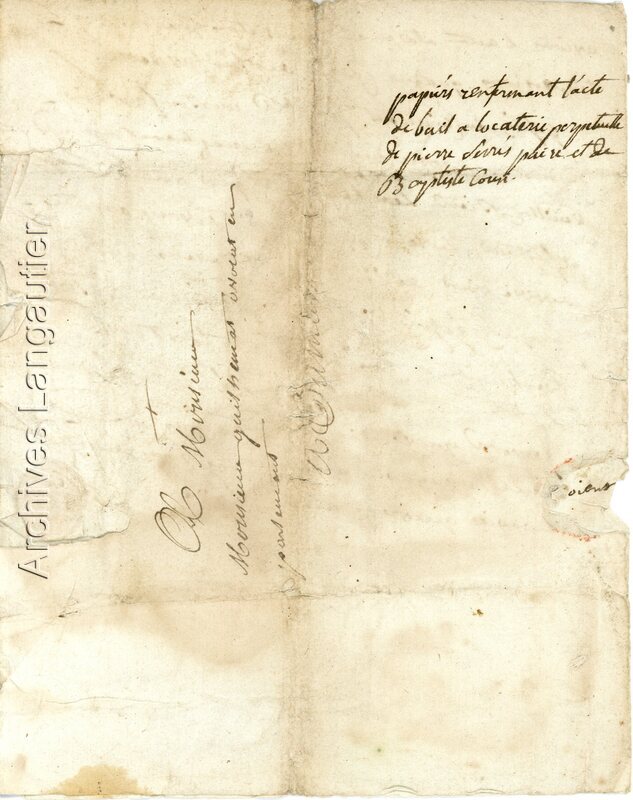 papiers renfermant l'acte
de bail a locaterie perpetuelle
de pierre père et de
Baptiste
A Monsieur
Monsieur guilhermat avocat en
parlement
Archives Langautier